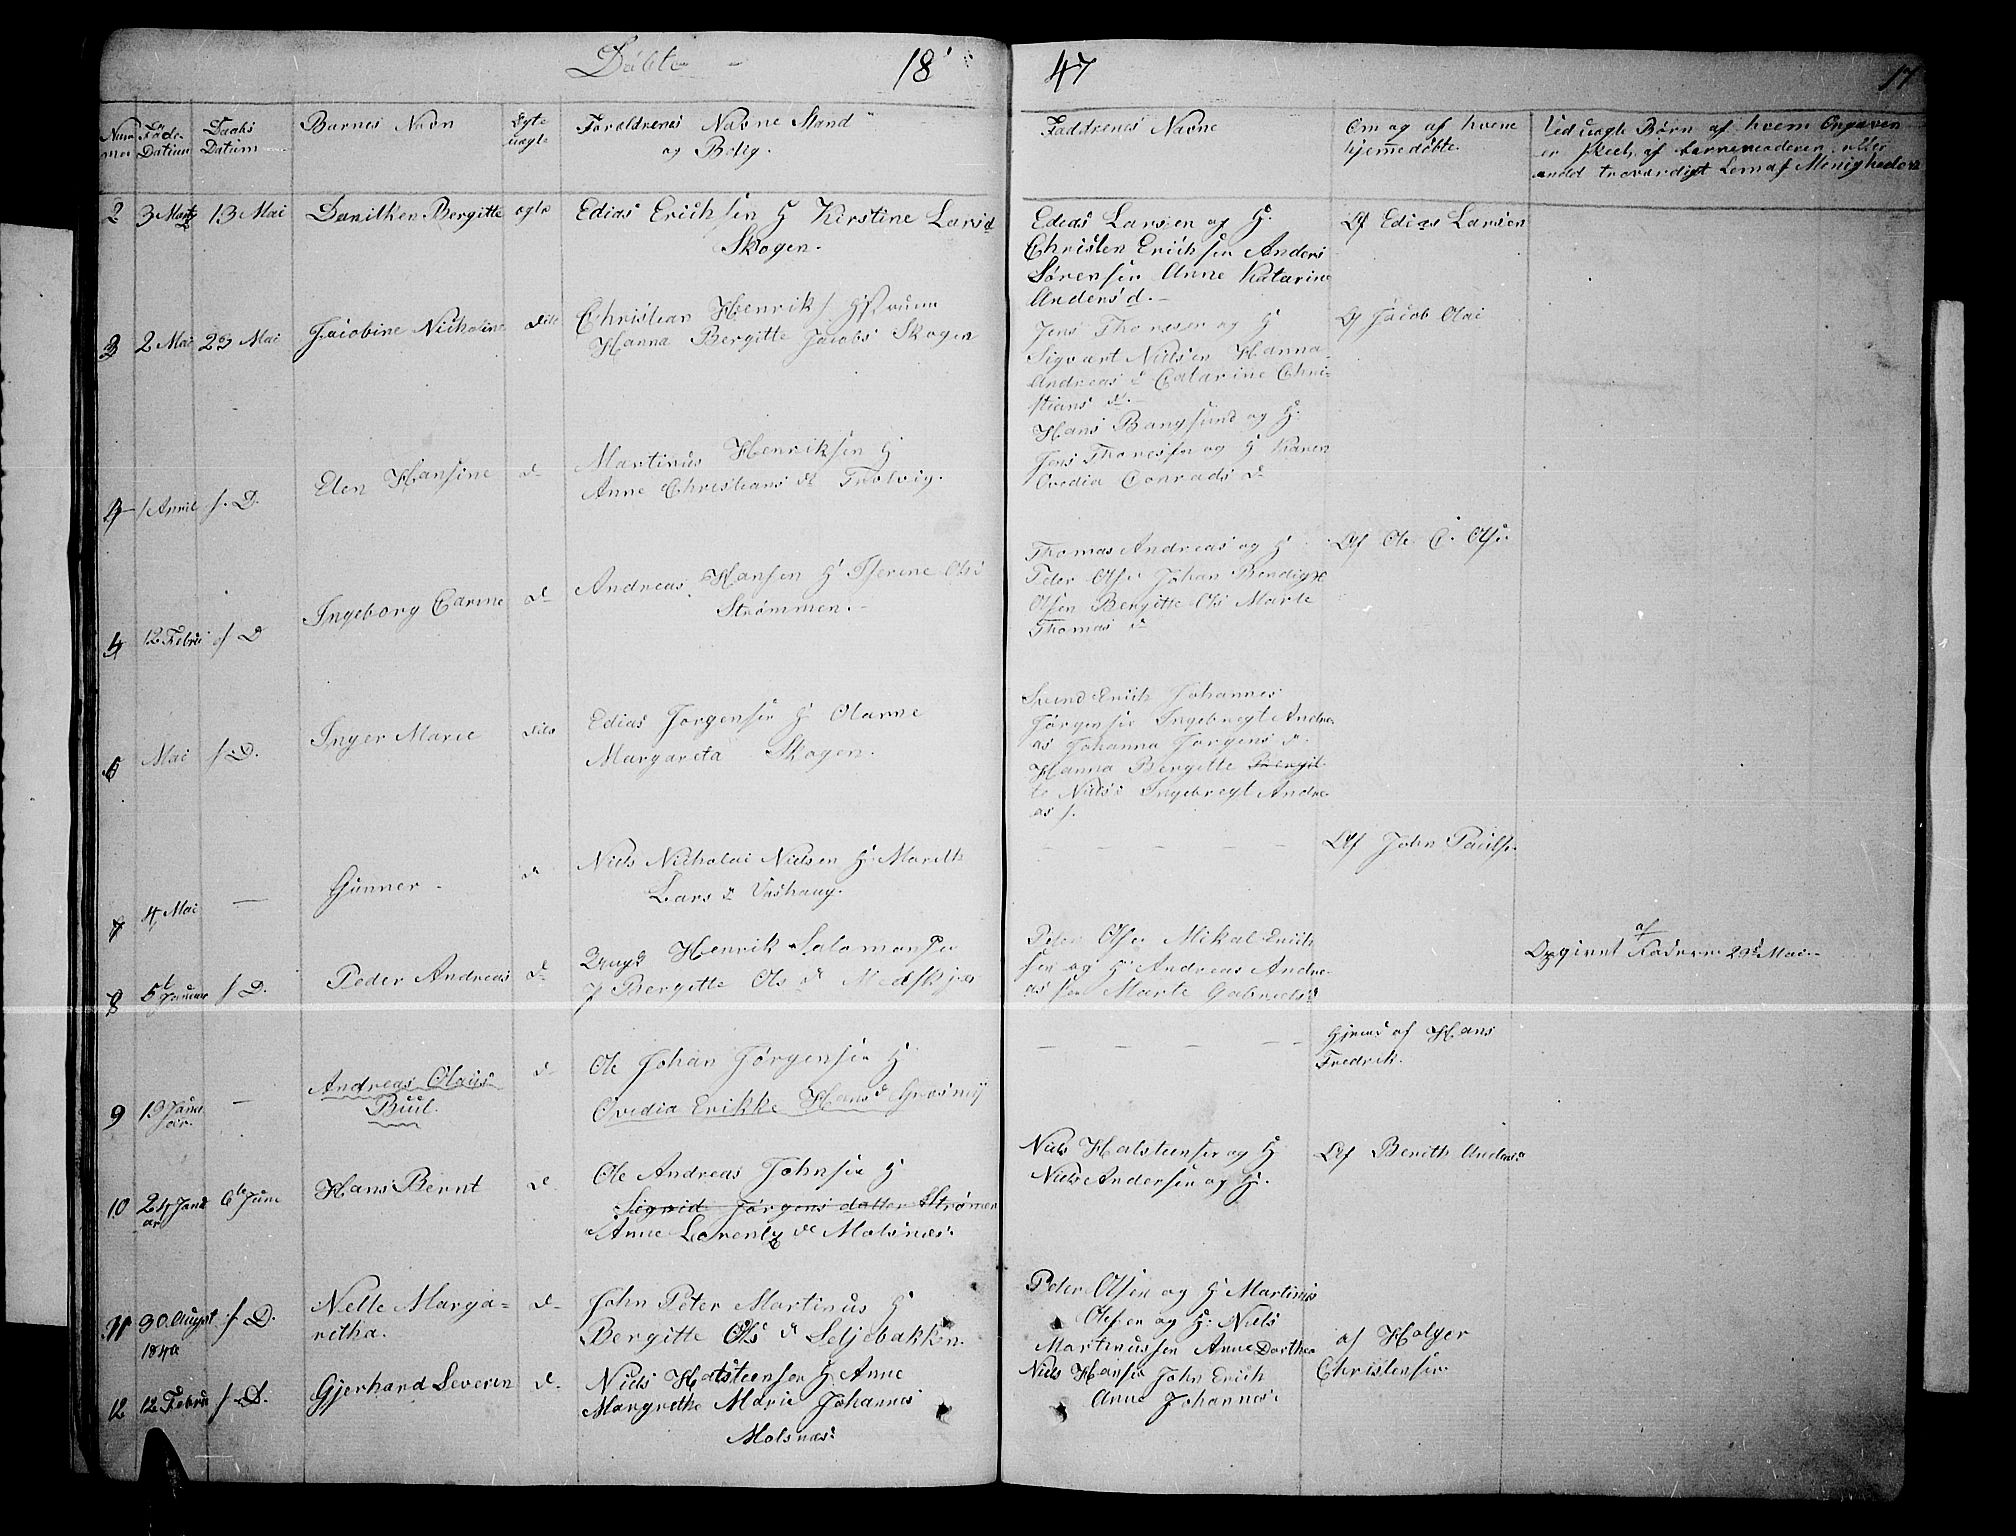 Døbte - 18 47 17
Num mer
Føds Datum
Daabs Datum
Barnes Navn
Ægte uægte
Forældrenes Navne Stand
og Bolig.
Faddrenes Navne
Om og af hvem
hjemmedøbte.
Ved uægte Børn af hvem Opgaven
er skeet, af barnemoderen eller
andet troværdigt Lem af Menigheden
2 3 Marts 13 Mai Danitken Bergitte ægte Edias Erichsen H Kirstine Lars d
Skogen.
Edias Larsen og H.
Christen Erichsen Anders
Sørensen Anne Katarine
Anders d. -
Af Edias Larsen
3 2 Mai 23 Mai Jacobine Nicholine dito Christian Henriks. H
Hanna Bergitte Jacobs Skogen
Jens Thoresen og H
Sigvart Nielsen Hanna
Andreas d Catarine Chri-
stians d. -
Af Jacob Olai
4 1 April s. D. Elen Hansine do Martinus Henriksen H
Anne Christians d
Hans Bangsund og H.
Jens Thoresen og H Karen
Ovedia Conrads d
4 12 Febru s D Ingeborg Carine do Andreas Hansen H Iserine Ols
Strømmen. -
Thomas Andreas og H
Peder Olsen Johan Bendigt
Olsen Bergitte Ols Marte
Thomas d
Af Ole C. Olsen
6 Mai s. D. Inger Marie dito Edias Jørgensen H Olarne
Margareta Skogen.
Svend Erich Johannes
Jørgensen Ingebregt Andre
as Johanna Jørgens d.
Hanna Bergitte Brengit
te Niels d Ingebregt Andre
as s.
7 4 Mai — Gunner. do Niels Nicholai Nielsen H. Marith
Lars d
- - - - -
Af John Paulsen
8 5t Januar s D. Peder Andreas do Henrik Salomonsen
H Bergitte Ols d Medskjær
Peder Olsen Mikal Erich
sen og H. Andreas Andre
as sen Marte Gabriels d
af
Opgivet Faderen 29d Mai. -
9 19 Janu ar. — Andreas Olaus
Buul.
do Ole Johan Jørgensen H
Ovedia Erikke Hans d Græsmy
- - - - -
Hjemd af Hans
Fredrik.
10 24 Janu ar 6te Juni Hans Bernt do Ole Andreas Johnsen H
Sigrid Jørgens datter Strømen
Anne Lorentz de Molsnæs.
Niels Halsteensen og H
Niels Andersen og H.
Af Berith Anders d
11 30 August 1846 s. D. Nelle Marga=
retha.
do- John Peter Martinus H
Bergitte Ols d Seljebakken.
Peter Olsen og H Martinus
Olesen og H. Niels
Martinussen Anne Dorthea
12 12 Febru s. D. Gjerhard Severin do Niels Halsteensen H. Anne
Margrethe Marie Johannes
Molsnæs.
Niels Hansen John Erich
Anne Johannes.
af Holger
Christensen.